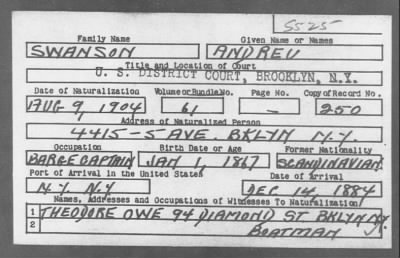 S525
Family Name Given Name or Names
SWANSON ANDREU
Title and Location of Court
U. S. DISTRICT COURT, BROOKLYN, N.Y.
Date of Naturalization Volume or Bundle No. Page No. Copy of Record No.
AUG 9, 1904 61 — 250
Address of Naturalized Person
4415-5 AVE. BKLYN N.Y.
Occupation Birth Date or Age Former Nationality
BARGE CAPTAIN JAN 1, 1867 SCANDINAVIAN
Port of Arrival in the United States Date of Arrival
N.Y. N.Y DEC. 14, 1884
Names, Addresses and Occupations of Witnesses To Naturalization
1 THEODORE OWE 94 DIAMOND ST BKLYN N.Y.
2 BOATMAN